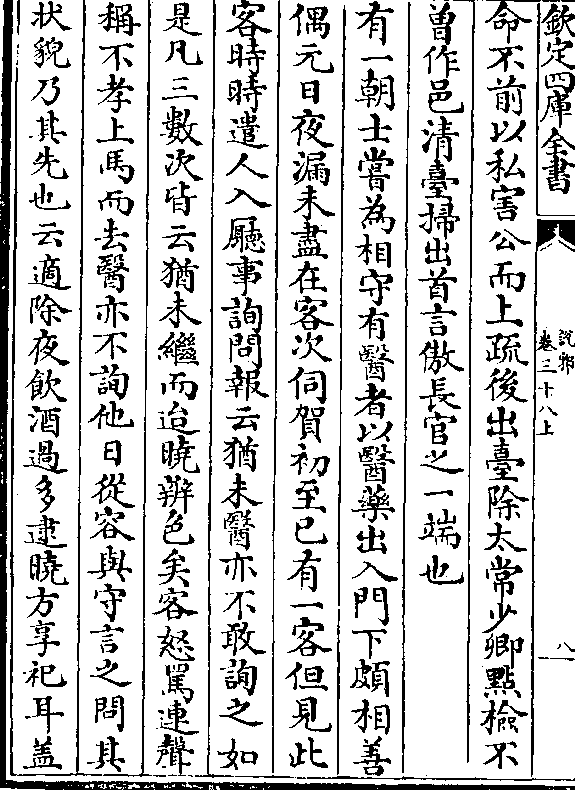 欽定四庫全書
說郛
卷三十八上
八
命不前以私害公而上疏後出臺除太常少卿點檢不
曽作邑清臺掃出首言傲長官之一端也
有一朝士嘗為相守有醫者以醫藥出入門下頗相善
偶元日夜漏未盡在客次伺賀初至已有一客但見此
客時時遣人入廳事詢問報云猶未醫亦不敢詢之如
是凡三數次皆云猶未繼而迨曉辨色矣客怒罵連聲
稱不孝上馬而去醫亦不詢他日從容與守言之問其
状貌乃其先也云適除夜飲酒過多逮曉方享祀耳盖